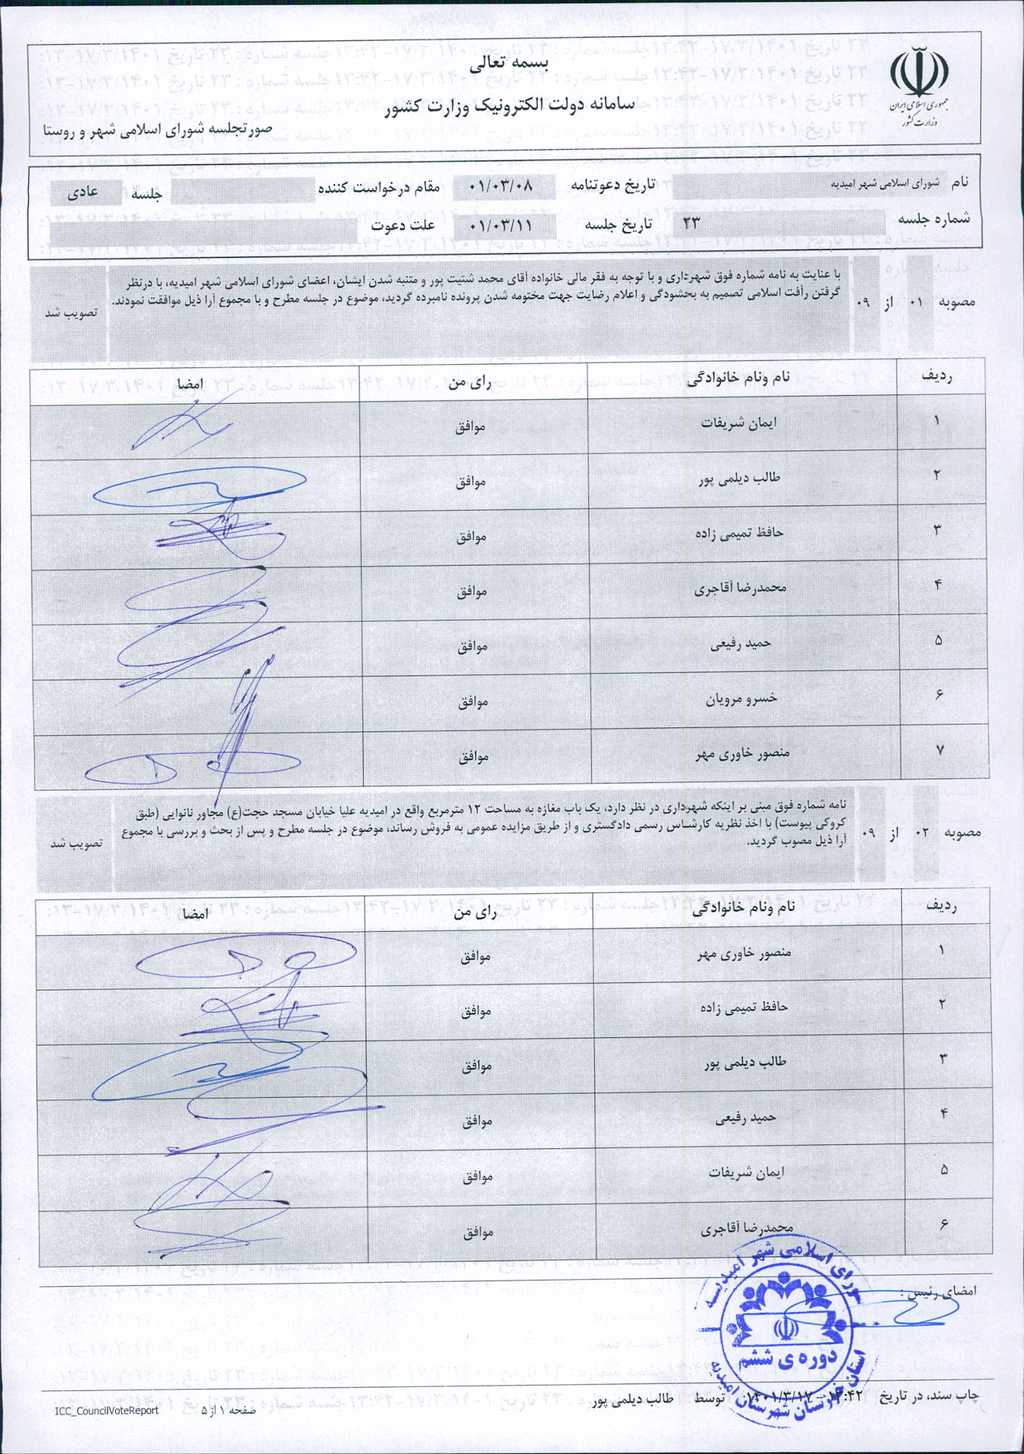 جمهوری اسلامی ایران
وزارت کشور
بسمه تعالی
سامانه دولت الکترونیک وزارت کشور
صورتجلسه شورای اسلامی شهر و روستا
نام شورای اسلامی شهر امیدیه تاریخ دعوتنامه ۰۱/۰۳/۰۸ مقام درخواست کننده جلسه عادی
شماره جلسه ۲۳ تاریخ جلسه ۰۱/۰۳/۱۱ علت دعوت
مصوبه ۰۱ از ۰۹
با عنایت به نامه شماره فوق شهرداری و با توجه به فقر مالی خانواده آقای محمد شتیت پور و متنبه شدن ایشان، اعضای شورای اسلامی شهر امیدیه، با درنظر
گرفتن رأفت اسلامی تصمیم به بخشودگی و اعلام رضایت جهت مختومه شدن پرونده نامبرده گردید، موضوع در جلسه مطرح و با مجموع آرا ذیل موافقت نمودند.
تصویب شد
ردیف نام ونام خانوادگی رای من امضا
۱ ایمان شریفات موافق
۲ طالب دیلمی پور موافق
۳ حافظ تمیمی زاده موافق
۴ محمدرضا آقاجری موافق
۵ حمید رفیعی موافق
۶ خسرو مرویان موافق
۷ منصور خاوری مهر موافق
مصوبه ۰۲ از ۰۹
نامه شماره فوق مبنی بر اینکه شهرداری در نظر دارد، یک باب مغازه به مساحت ۱۲ مترمربع واقع در امیدیه علیا خیابان مسجد حجت(ع) مجاور نانوایی (طبق
کروکی پیوست) با اخذ نظریه کارشناس رسمی دادگستری و از طریق مزایده عمومی به فروش رساند، موضوع در جلسه مطرح و پس از بحث و بررسی با مجموع
آرا ذیل مصوب گردید.
تصویب شد
ردیف نام ونام خانوادگی رای من امضا
۱ منصور خاوری مهر موافق
۲ حافظ تمیمی زاده موافق
۳ طالب دیلمی پور موافق
۴ حمید رفیعی موافق
۵ ایمان شریفات موافق
۶ محمدرضا آقاجری موافق
امضای رئیس :
شورای اسلامی شهر امیدیه
دوره ی ششم
استان خوزستان شهرستان امیدیه
چاپ سند، در تاریخ ۱۴۰۱/۳/۱۷ توسط طالب دیلمی پور
صفحه ۱ از ۵
ICC_CouncilVoteReport